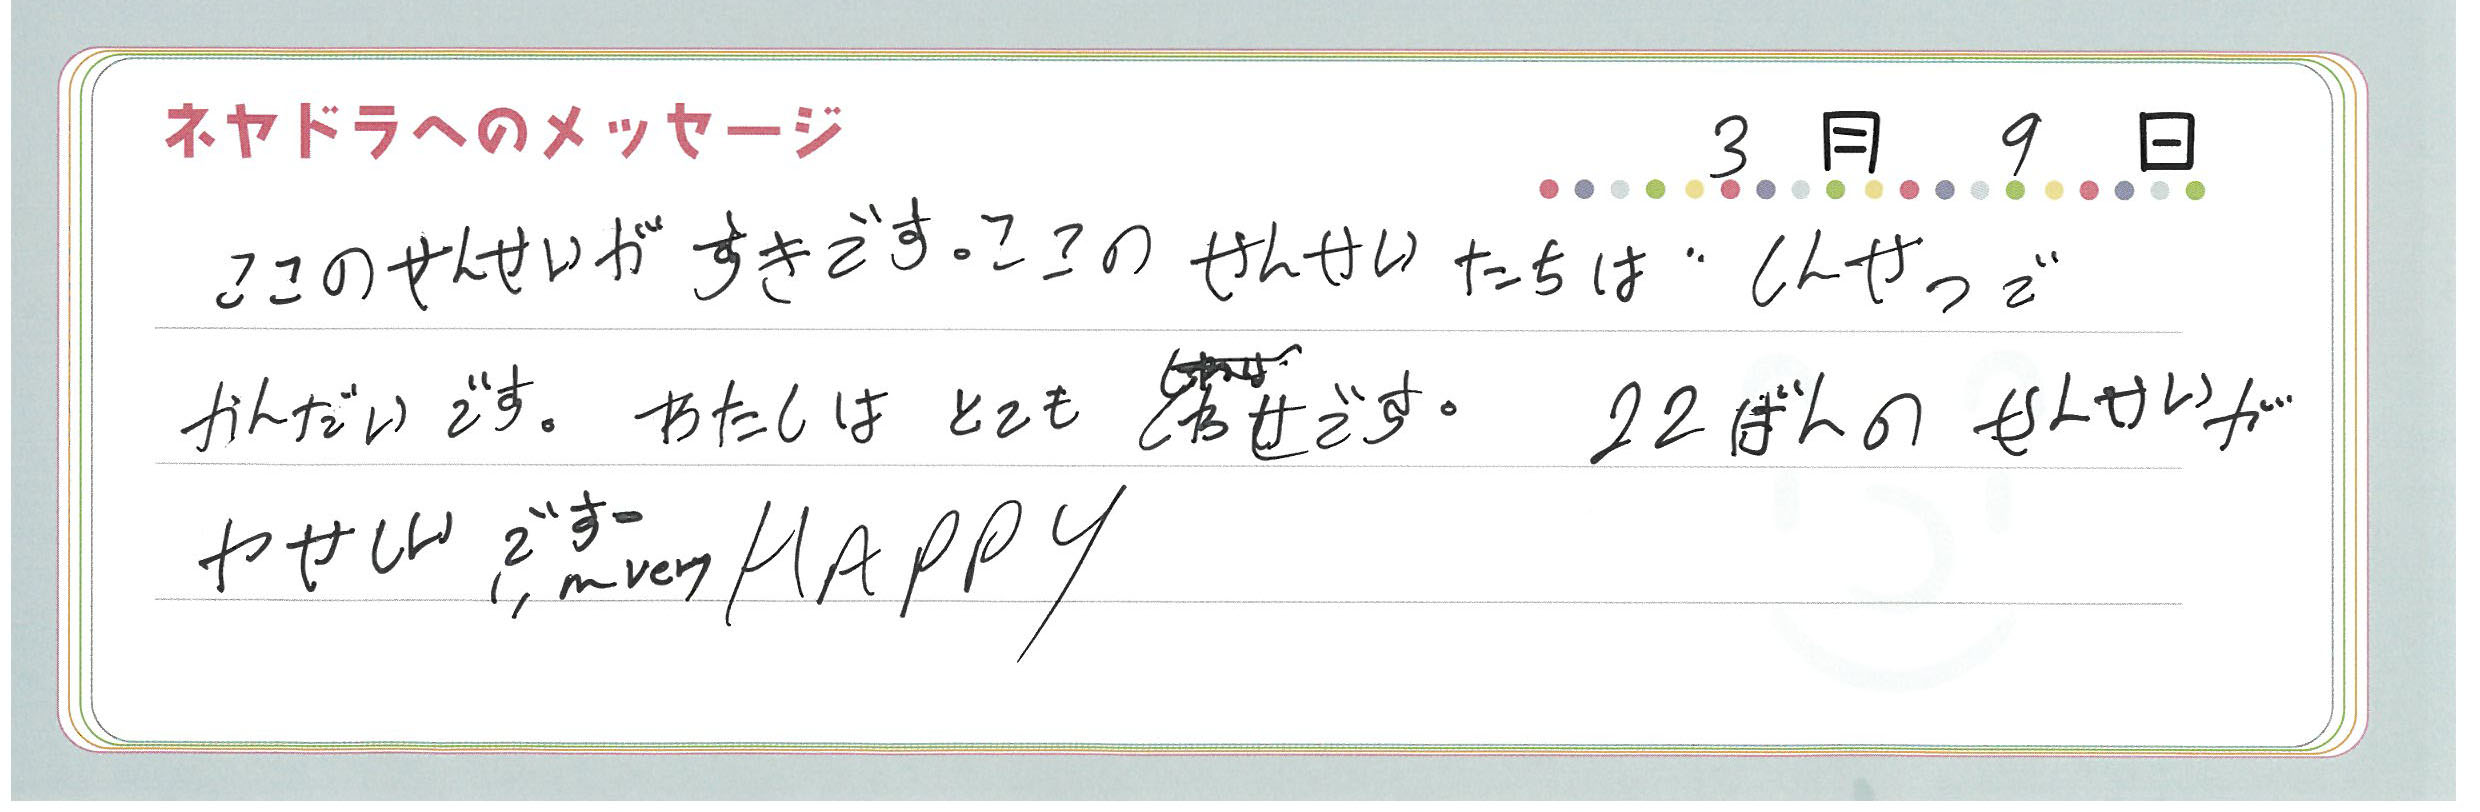 ネヤドラへのメッセージ
3月 9日
ここのせんせいがすきです。ここの せんせい たちは しんせつで
かんだいです。 わたしは とても しわせです。 22ばんの せんせいが
やせしい ですー
I'm very HAPPY